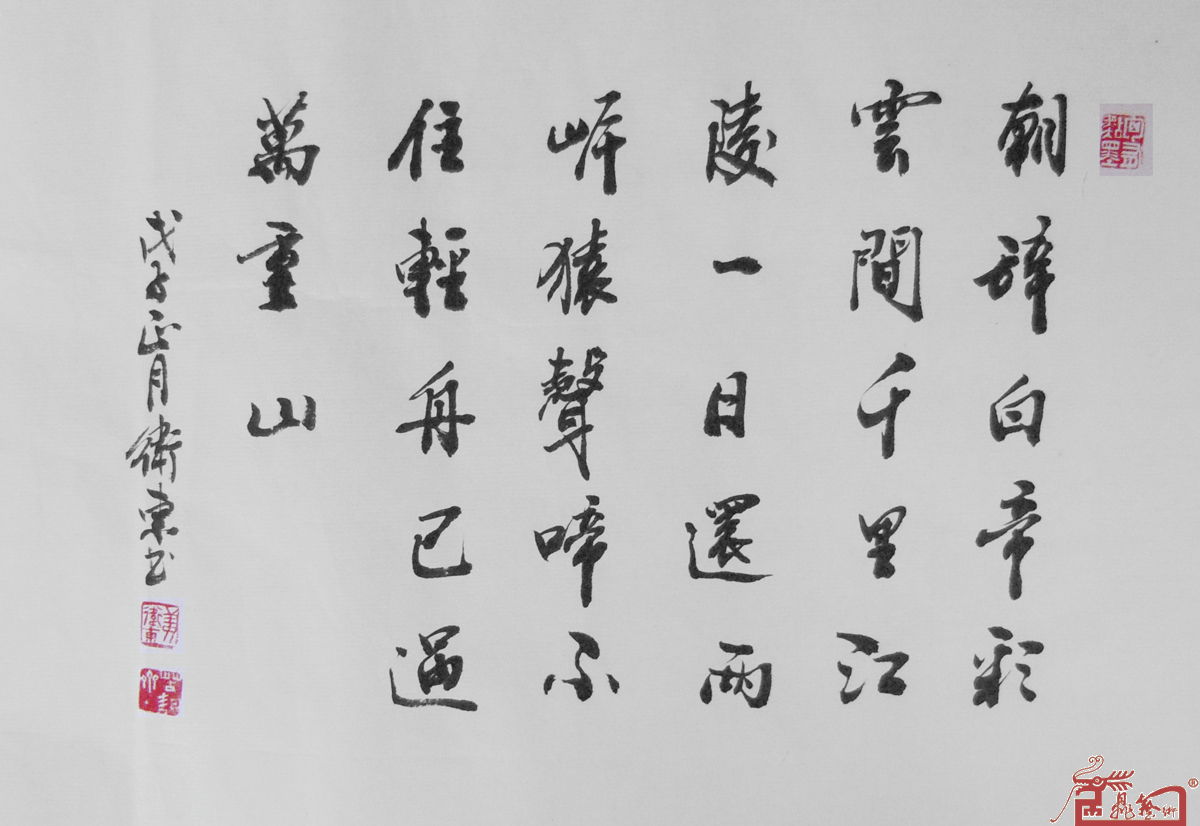 朝辞白帝彩
雲間千里江
陵一日還兩
岍猿聲啼不
住輕舟已過
萬重山
戊子正月衛東书